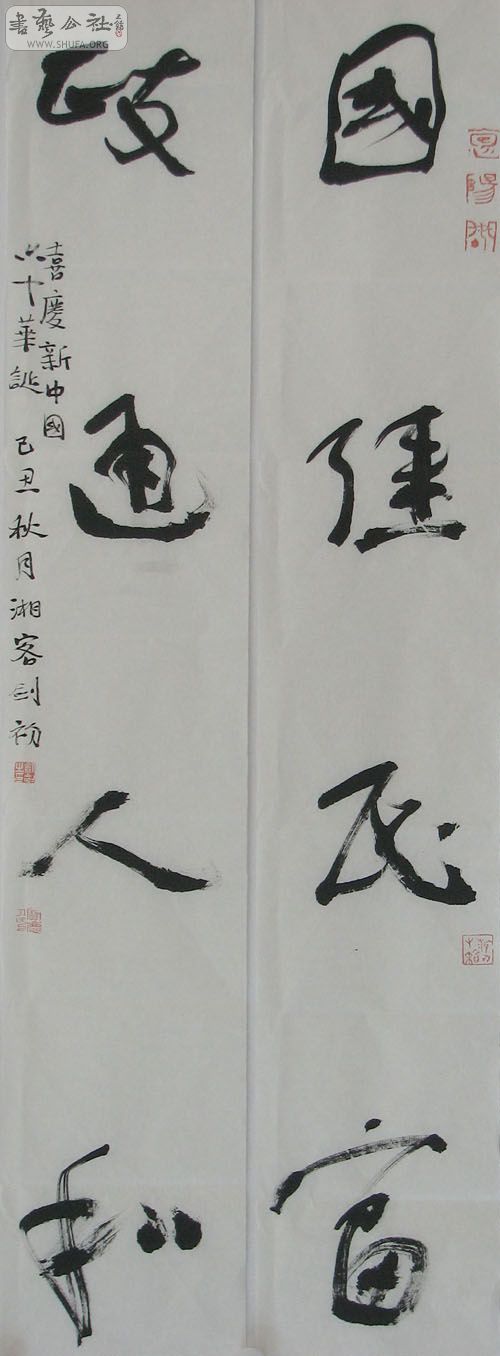 書藝公社
WWW.SHUFA.ORG
國強民富
政通人和
喜慶新中國
六十華誕 己丑秋月湘客